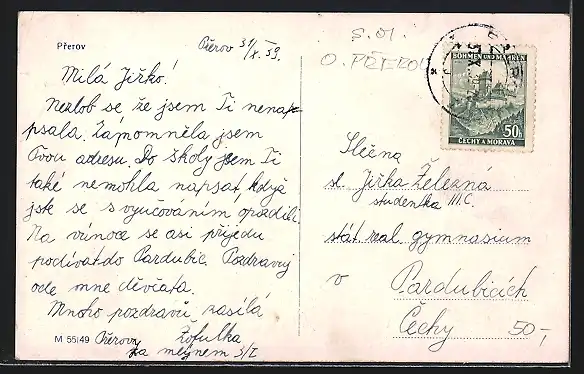 Přerov
Přerov 31/X. 39.
Milá Jiřko!
Nezlob se že jsem Ti nena-
psala. Zapomněla jsem
Tvou adresu. Do školy jsem Ti
také nemohla napsat, když
jste se s vyučováním opozdili.
Na vánoce se asi přijedu
podívat do Pardubic. Pozdravuj
ode mne děvčata.
Mnoho pozdravů zasílá
Žofulka
Přerov
za mlýnem 3/I
M 55149
S. 01.
O. PŘEROV
BÖHMEN UND MÄHREN
50h
ČECHY A MORAVA
Slečna
sl. Jiřka Železná
studentka III.C.
stát. real. gymnasium
v Pardubicích
Čechy
50,-